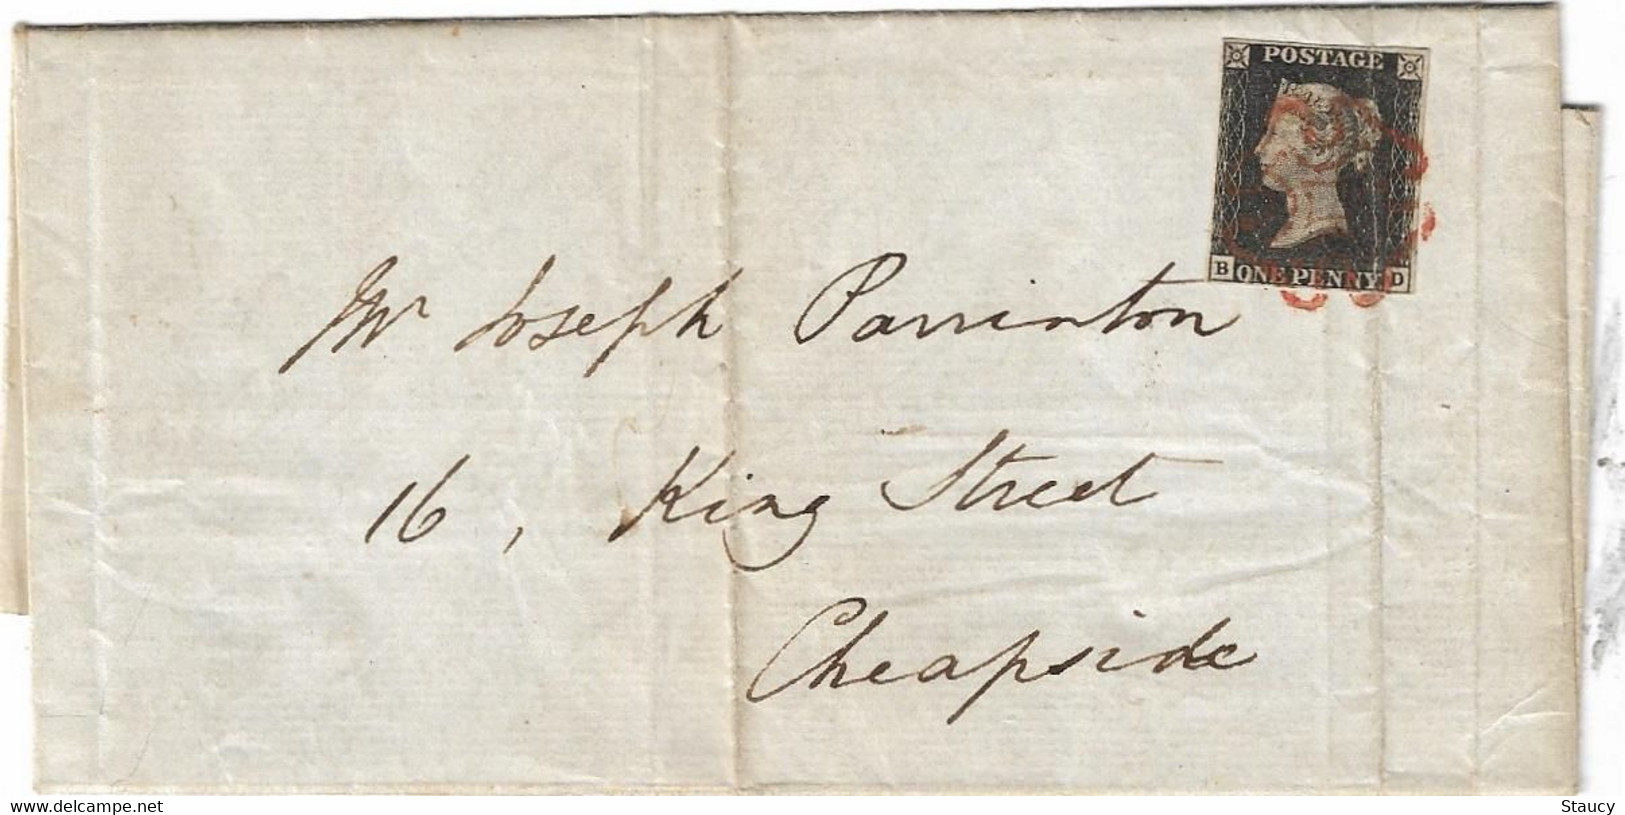 POSTAGE
B ONE PENNY D
Mr Joseph Parrinton
16, King Street
Cheapside
www.delcampe.net
Staucy